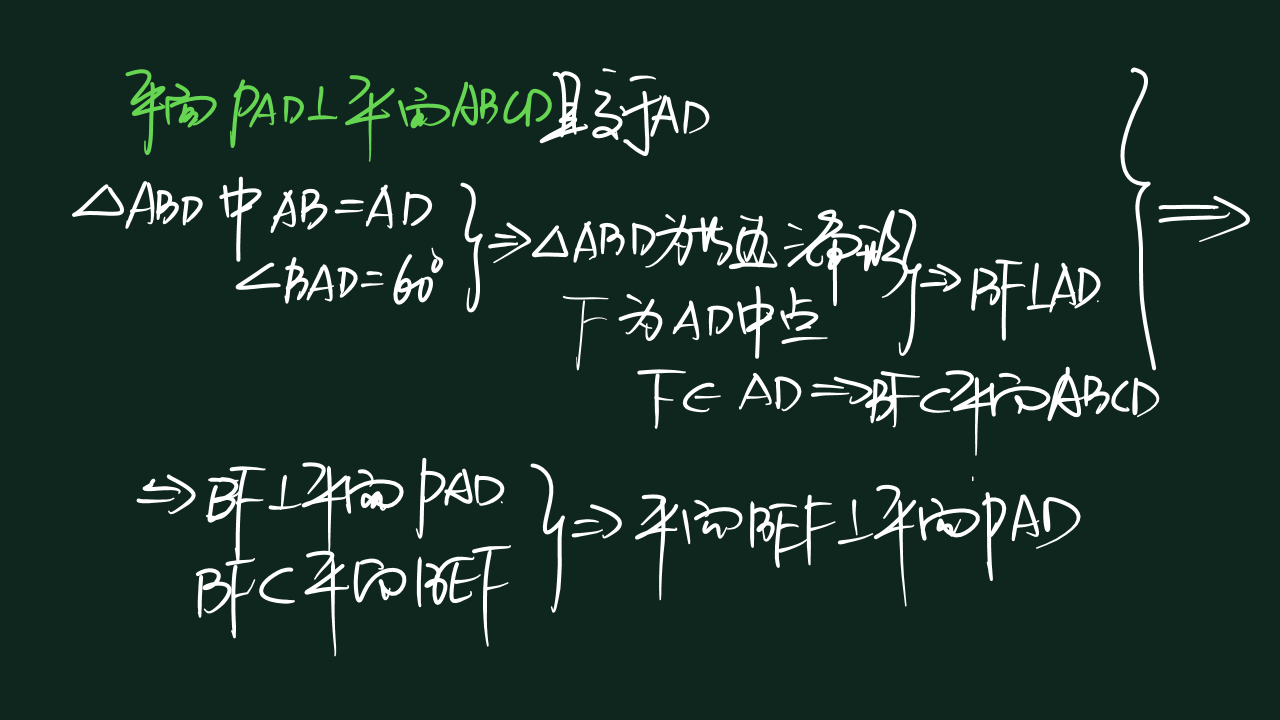 平面PAD⊥平面ABCD且交于AD
△ABD中AB=AD
∠BAD=60°
⇒△ABD为等边三角形
F为AD中点
⇒BF⊥AD
⇒
F∈AD⇒BF⊂平面ABCD
⇒BF⊥平面PAD
BF⊂平面BEF
⇒平面BEF⊥平面PAD